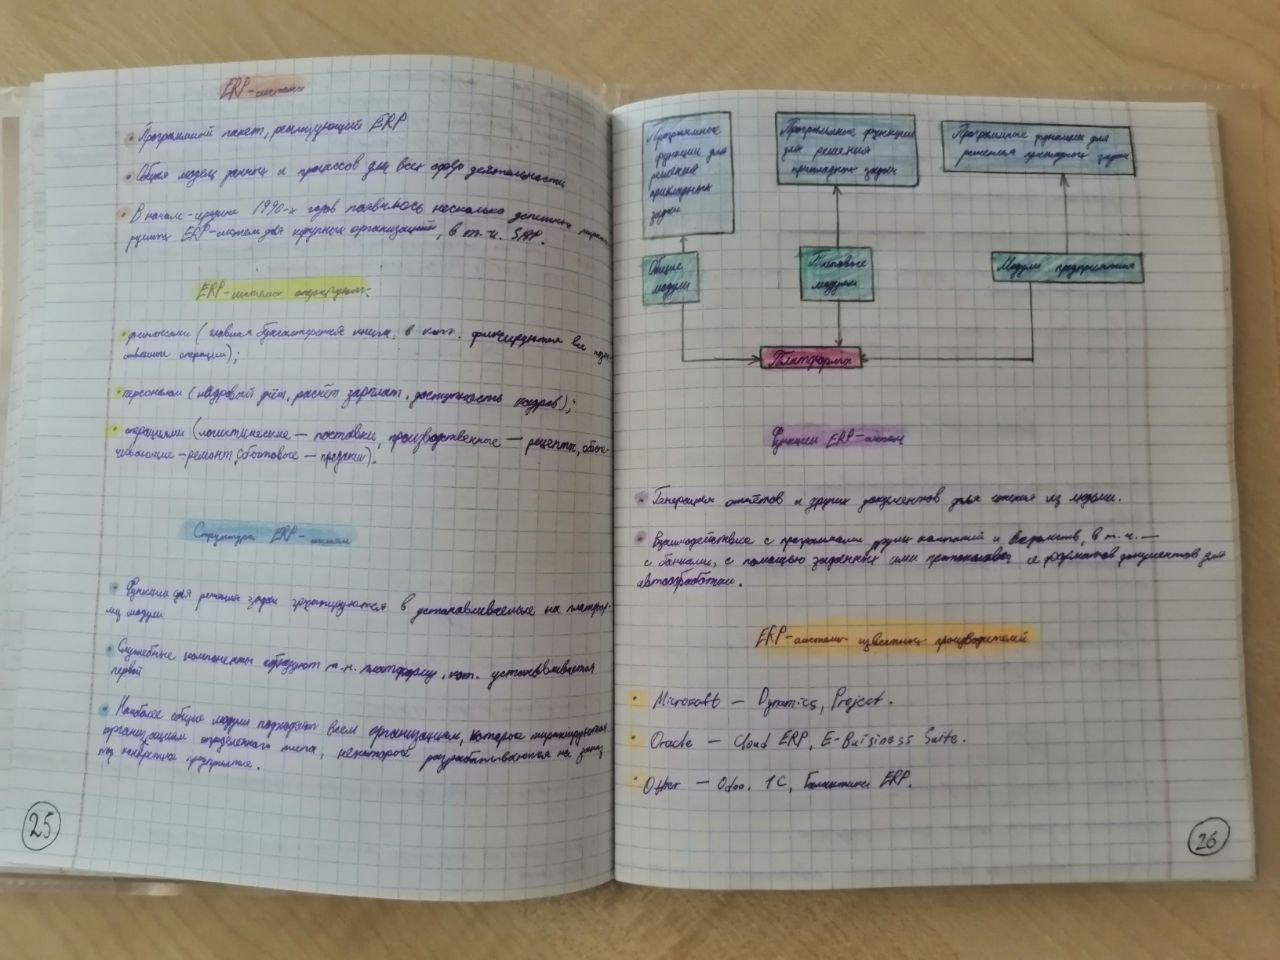 ERP-системы
• Программный пакет, реализующий ERP
• Общая модель данных и процессов для всех сфер деятельности
• В начале-середине 1990-х годов появилось несколько успешных
ERP-систем для крупных организаций, в т.ч. SAP.
ERP-системы оперируют:
• финансами (главная бухгалтерская книга, в кот. фиксируются все
операции);
• персоналом (кадровый учёт, расчёт зарплат, доступность кадров);
• операциями (логистические — поставки, производственные — рецепты, обеспе-
чивающие — ремонт, сбытовые — продажи).
Структура ERP-систем
• Функции для решения задач группируются в устанавливаемые на платфор-
му модули
• Служебные компоненты образуют т.н. платформу, кот. устанавливается
первой
• Наиболее общие модули подходят всем организациям, которое
организациям определённого типа, некоторые разрабатываются на заказ
под конкретное предприятие.
25
Программные
функции для
решения
прикладных
задач
Программные функции
для решения
прикладных задач
Программные функции для
решения прикладных задач
Общие
модули
Типовые
модули
Модули предприятия
Платформа
Функции ERP-систем
• Генерация отчётов и других документов для чтения их людьми.
• Взаимодействие с программами других компаний и ведомств, в т.ч. —
с банками, с помощью заданных ими протоколов и форматов документов для
автообработки.
ERP-системы известных производителей
• Microsoft — Dynamics, Project.
• Oracle — Cloud ERP, E-Buisiness Suite.
• Other — Odoo, 1C, Галактика ERP.
26